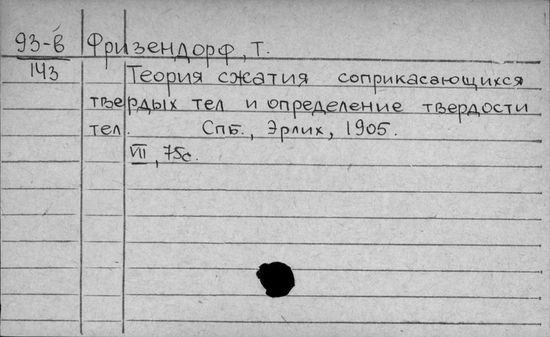 93-6 Фризендорф, Т.
143
Теория сжатия соприкасающихся
твердых тел и определение твердости
тел. Спб., Эрлих, 1905.
VII, 75с.